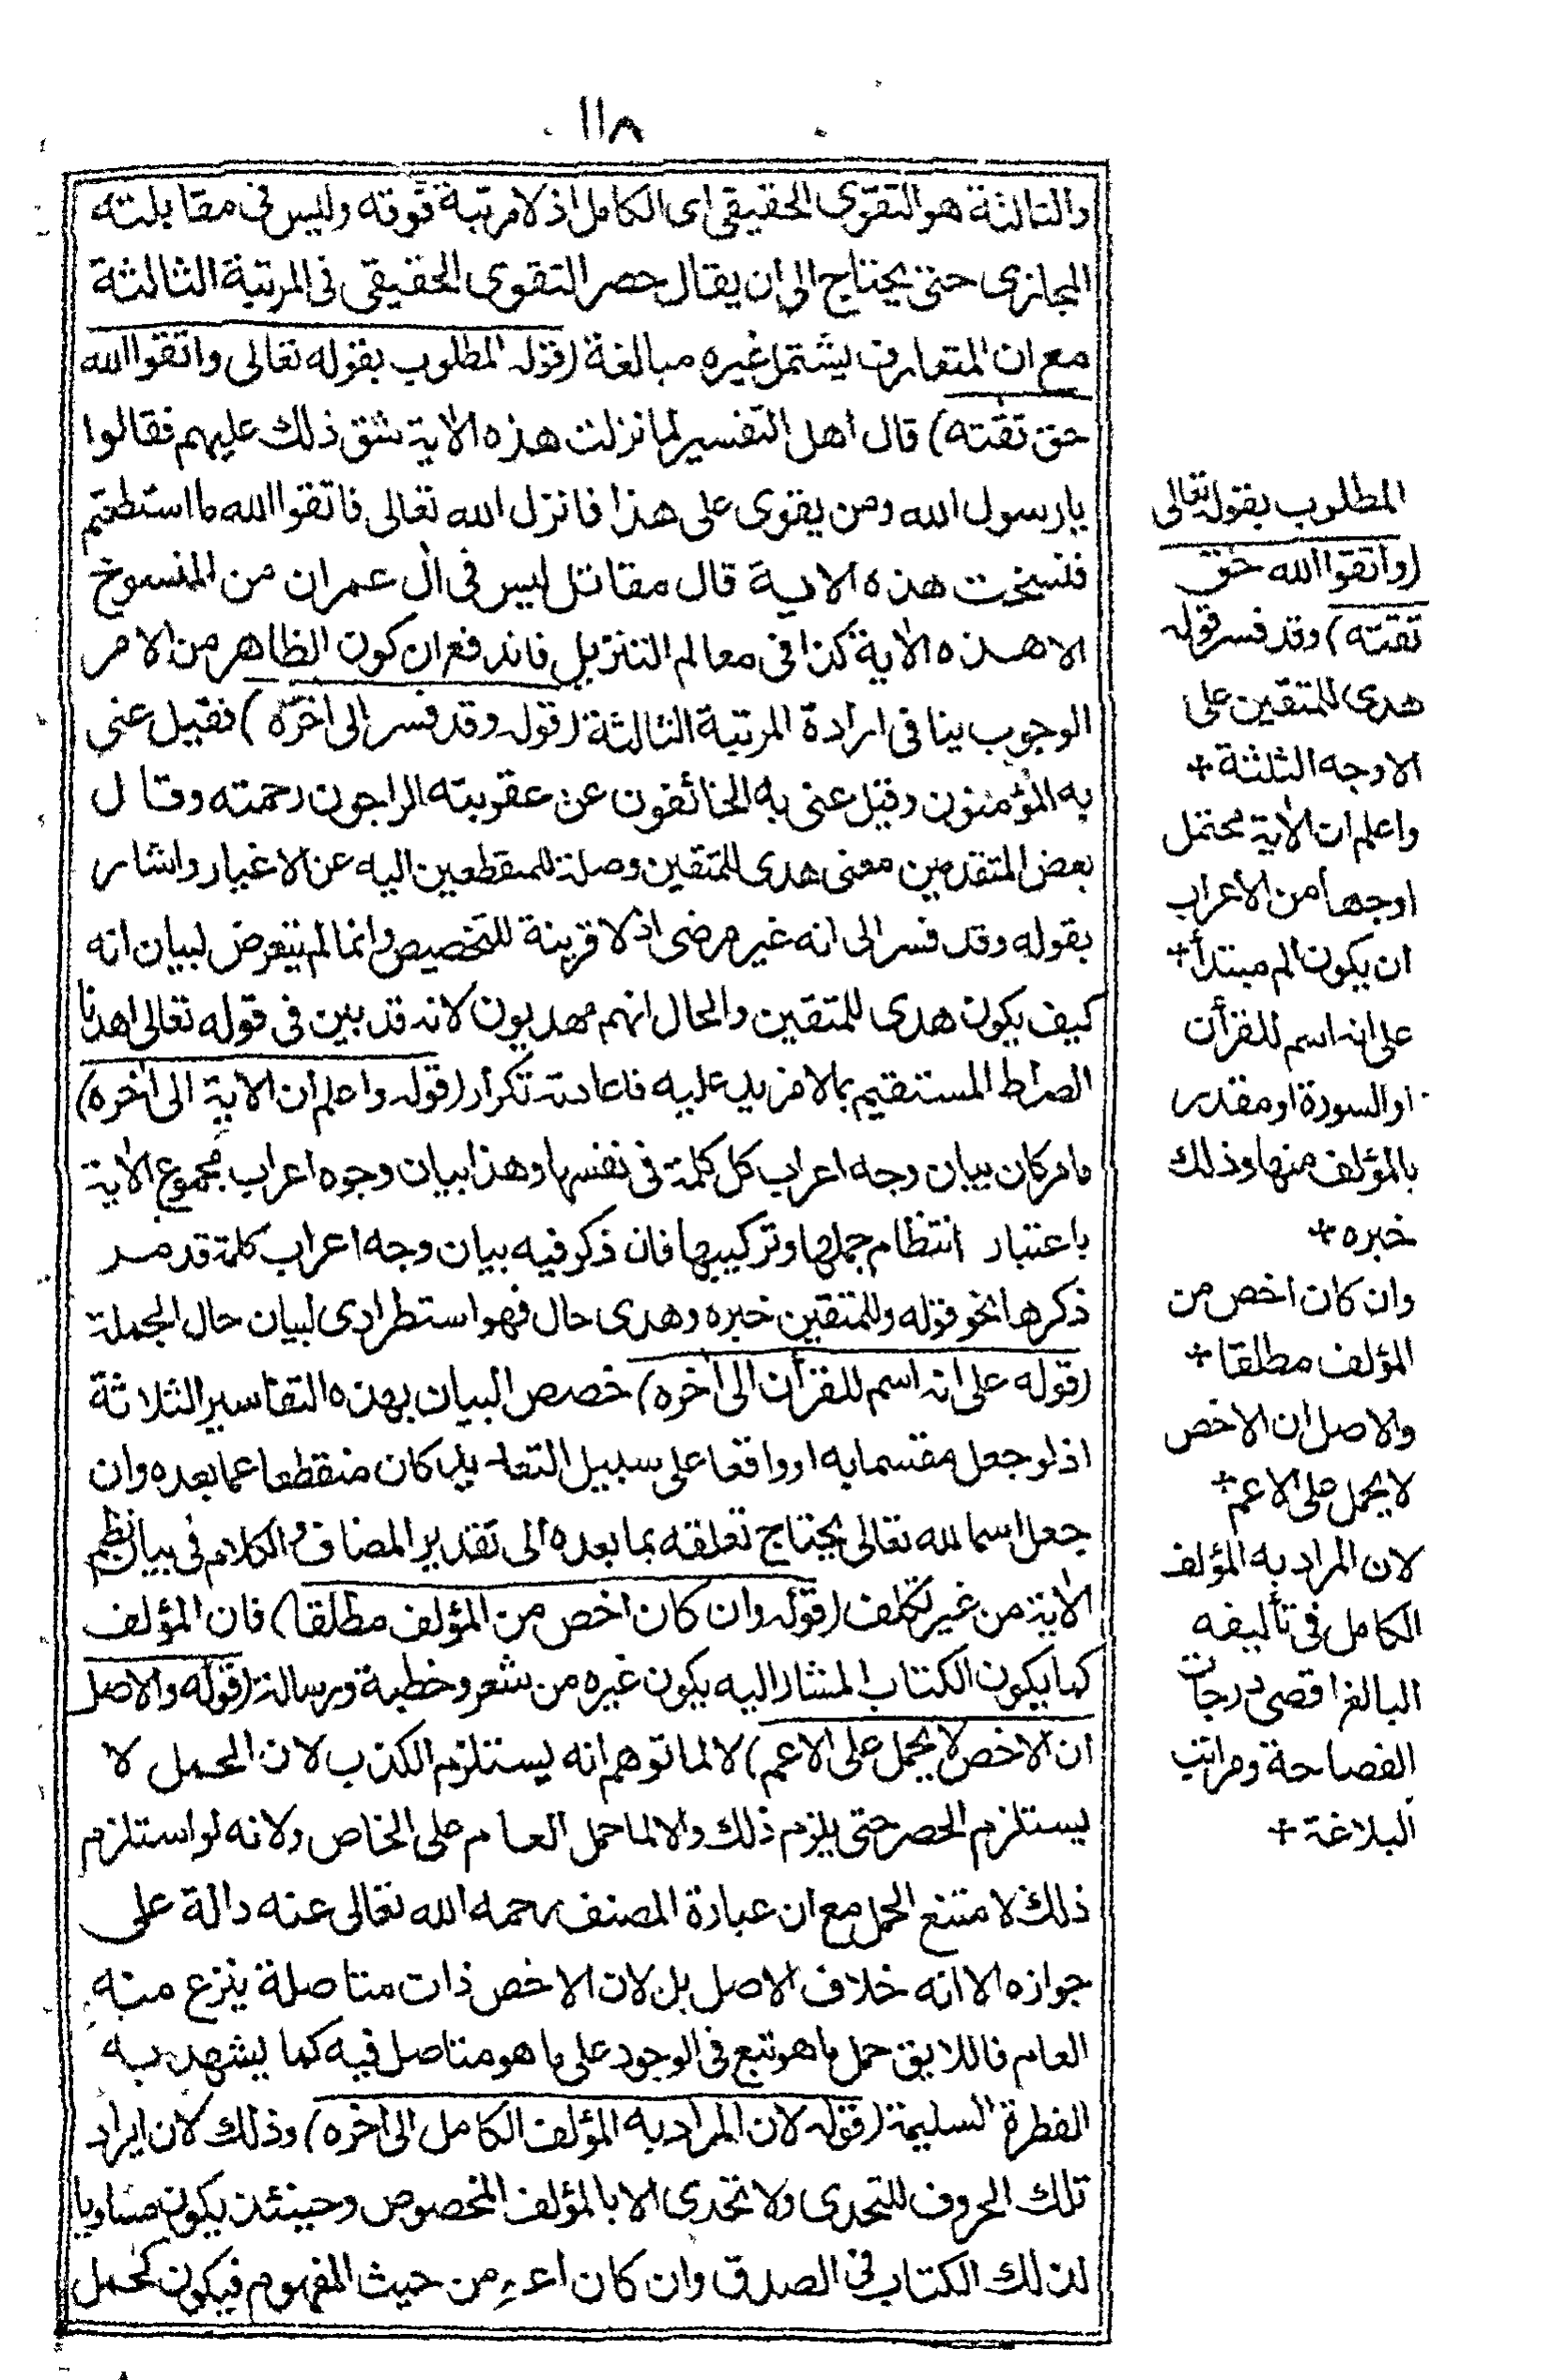 ١١٨
والثالثة هو التقوى الحقيقى اى الكامل اذ لا مرتبة فوقه وليس فى مقابلته
المجازى حتى يحتاج الى ان يقال حصر التقوى الحقيقى فى المرتبة الثالثة
مع ان المتعارف يشتمل غيره مبالغة (قوله المطلوب بقوله تعالى واتقوا الله
حق تقته) قال اهل التفسير لما نزلت هذه الاية شق ذلك عليهم فقالوا
يا رسول الله ومن يقوى على هذا فانزل الله تعالى فاتقوا الله ما استطعتم
فنسخت هذه الاية قال مقاتل ليس فى اٰل عمران من المنسوخ
الا هذه الاٰية كذا فى معالم التنزيل فاندفع ان كون الظاهر من الامر
الوجوب ينافى ارادة المرتبة الثالثة (قوله وقد فسر الى اخره) فقيل عنى
به المؤمنون وقيل عنى به الخائفون عن عقوبته الراجون رحمته وقال
بعض المتقدمين معنى هدى للمتقين وصلة للمنقطعين اليه عن الاغيار واشار
بقوله وقد فسر الى انه غير مرضى اذ لا قرينة للتخصيص وانما لم يتعرض لبيان انه
كيف يكون هدى للمتقين والحال انهم مهديون لانه قد بين فى قوله تعالى اهدنا
الصراط المستقيم بما لا مزيد عليه فاعادته تكرار (قوله واعلم ان الاية الى اٰخره)
ما مر كان بيان وجه اعراب كل كلمة فى نفسها وهذا بيان وجوه اعراب مجموع الاٰية
باعتبار انتظام جملها وتركيبها فان ذكر فيه بيان وجه اعراب كلمة قد مر
ذكرها نحو قوله وللمتقين خبره وهدى حال فهو استطرادى لبيان حال الجملة
(قوله على انه اسم للقرأن الى اٰخره) خصص البيان بهذه التفاسير الثلاثة
اذ لو جعل مقسما به او واقعا على سبيل التعديد كان منقطعا عما بعده وان
جعل اسما لله تعالى يحتاج تعلقه بما بعده الى تقدير المضاف والكلام فى بيان نظم
الاٰية من غير تكلف (قوله وان كان اخص من المؤلف مطلقا) فان المؤلف
كما يكون الكتاب المشار اليه يكون غيره من شعر وخطبة ورسالة (قوله والاصل
ان الاخص لا يحمل على الاعم) لا لما توهم انه يستلزم الكذب لان الحمل لا
يستلزم الحصر حتى يلزم ذلك والا لما حمل العام على الخاص ولانه لو استلزم
ذلك لامتنع الحمل مع ان عبارة المصنف رحمه الله تعالى عنه دالة على
جوازه الا انه خلاف الاصل بل لان الاخص ذات متاصلة ينزع منه
العام فاللايق حمل ما هو تبع فى الوجود على ما هو متاصل فيه كما يشهد به
الفطرة السليمة (قوله لان المراد به المؤلف الكامل الى اٰخره) وذلك لان ايراد
تلك الحروف للتحدى ولا تحدى الا بالمؤلف المخصوص وحينئذ يكون مساويا
لذلك الكتاب فى الصدق وان كان اعم من حيث المفهوم فيكون كحمل
المطلوب بقوله تعالى
(واتقوا الله حق
تقته) وقد فسر قوله
هدى للمتقين على
الاوجه الثلثة +
واعلم ان الاٰية محتمل
اوجها من الاعراب
ان يكون الم مبتدأ +
على انه اسم للقرأن
او السورة او مقدر
بالمؤلف منها وذلك
خبره +
وان كان اخص من
المؤلف مطلقا +
والاصل ان الاخص
لا يحمل على الاعم +
لان المراد به المؤلف
الكامل فى تأليفه
البالغ اقصى درجات
الفصاحة ومراتب
البلاغة +